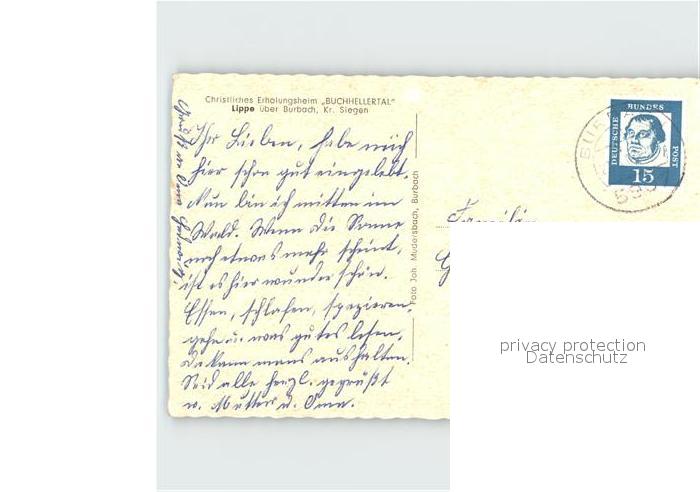 Christliches Erholungsheim „BUCHHELLERTAL"
Lippe über Burbach, Kr. Siegen
Ihr Lieben, habe mich
hier schon gut eingelebt.
Nun bin ich mitten im
Wald. Wenn die Sonne
noch etwas mehr scheint,
ist es hier wunderschön.
Essen, schlafen, spazieren
gehn u. was gutes lesen,
da kann mans aushalten.
Seid alle herzl. gegrüßt
v. Mutter u. Oma.
Foto Joh. Mudersbach, Burbach
DEUTSCHE BUNDES POST
15
Familie
privacy protection
Datenschutz